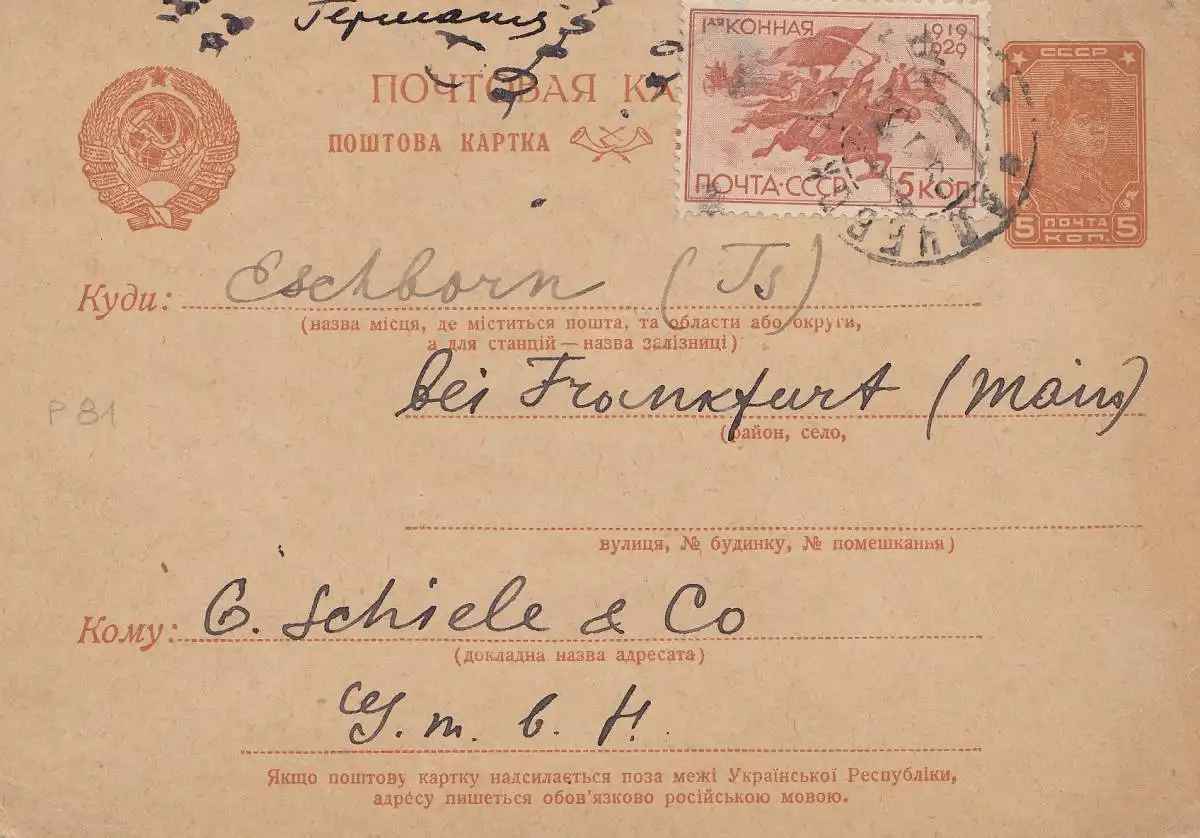 Германия
1ая КОННАЯ 1919 1929
СССР
ПОЧТОВАЯ КА
ПОШТОВА КАРТКА
ПОЧТА·СССР 5 КОП
5 ПОЧТА КОП. 5
Куди: Eschborn (Ts)
(назва місця, де міститься пошта, та области або округи,
а для станцій — назва залізниці)
bei Frankfurt (Main)
P 81
(район, село,
вулиця, № будинку, № помешкання)
Кому: G. Schiele & Co
(докладна назва адресата)
G. m. b. H.
Якщо поштову картку надсилається поза межі Української Республіки,
адресу пишеться обов'язково російською мовою.